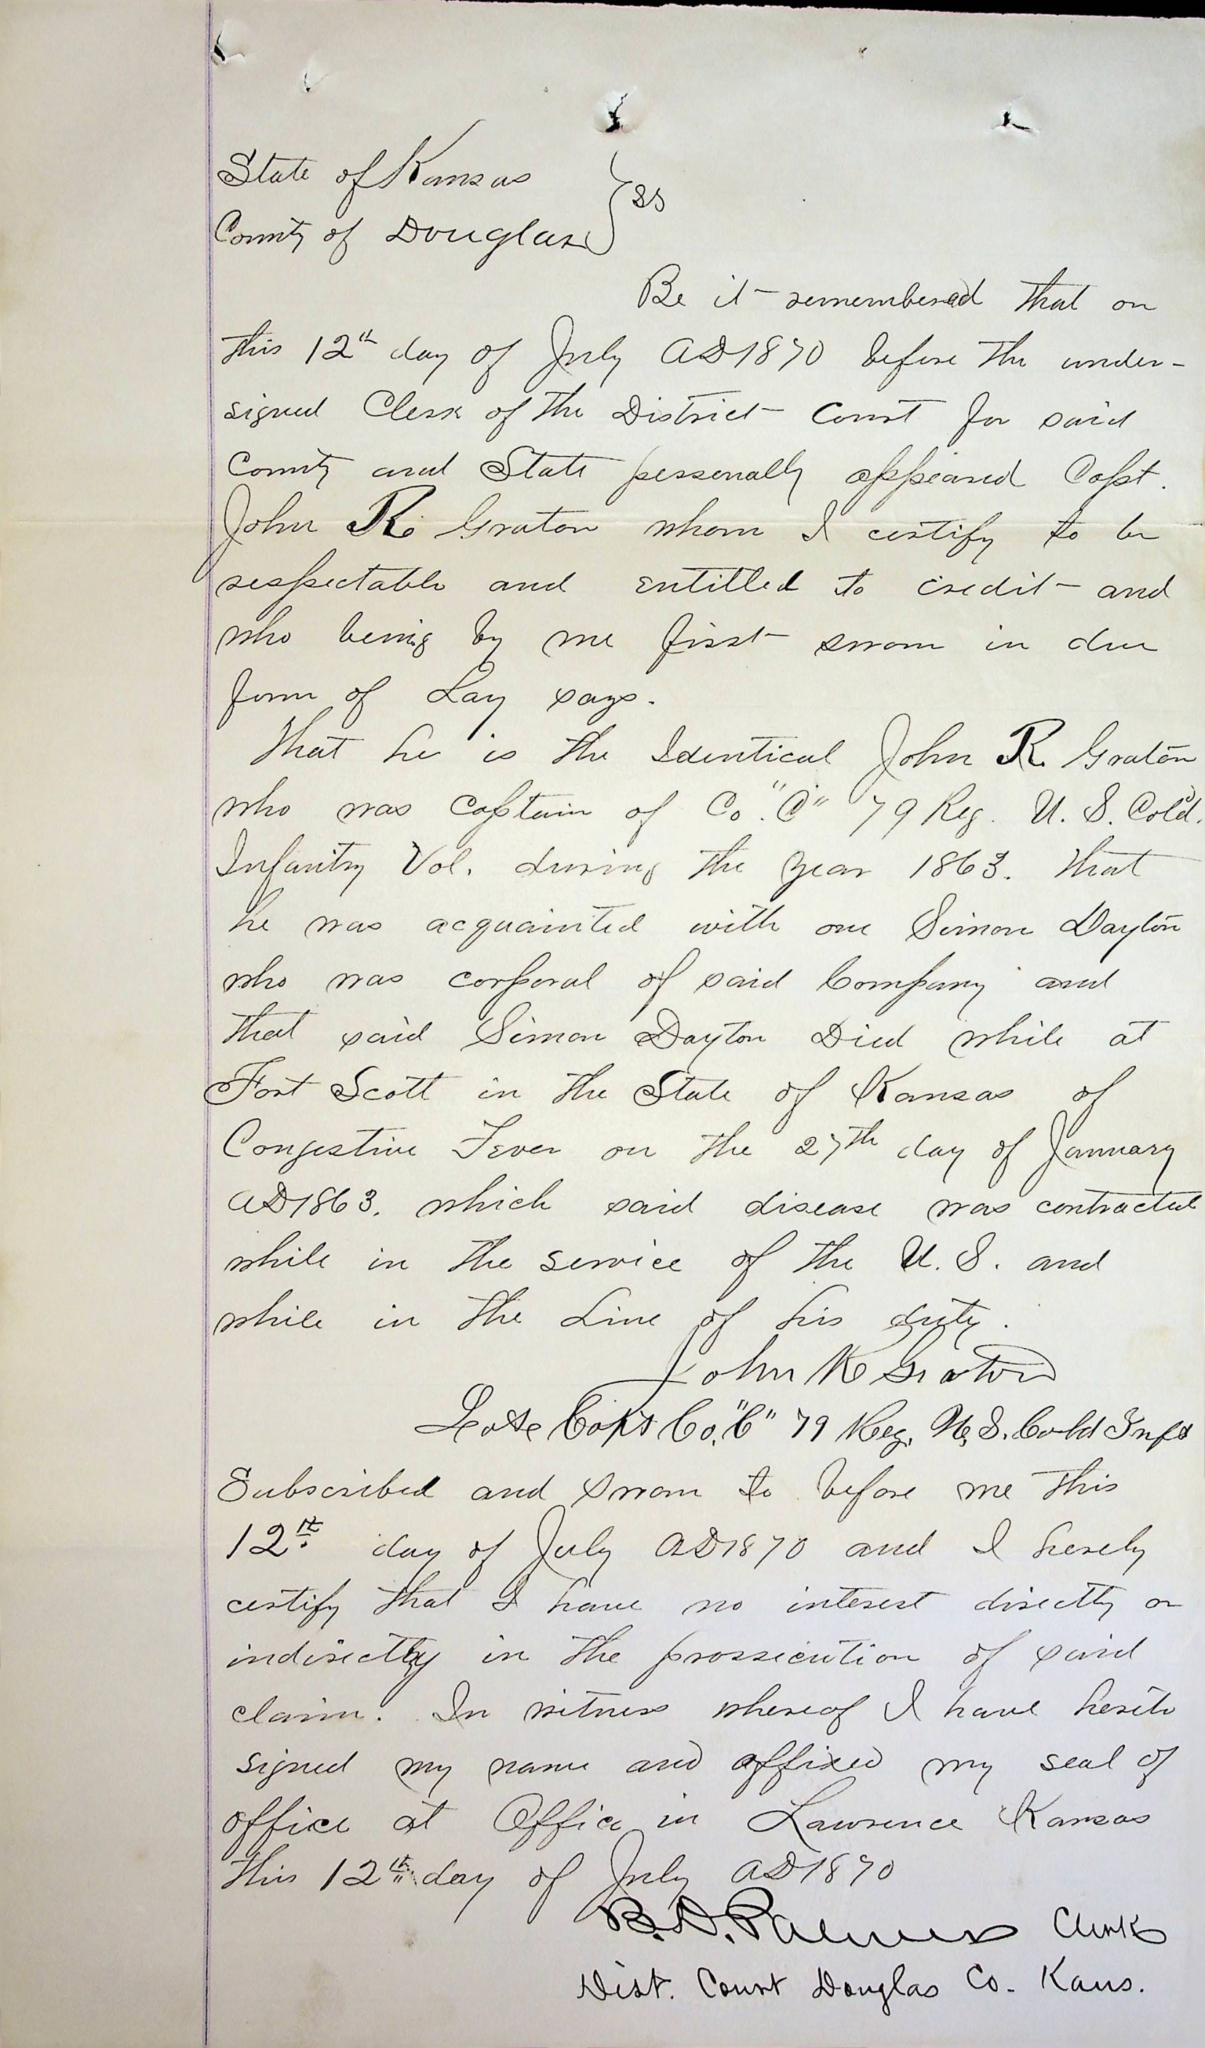 State of Kansas
County of Douglas } SS
Be it remembered that on
this 12th day of July AD 1870 before the under-
signed Clerk of the District Court for said
County and State personally appeared Capt.
John R. Graton whom I certify to be
respectable and entitled to credit and
who being by me first sworn in due
form of Lay says.
That he is the Identical John R. Graton
who was Captain of Co. "C" 79 Reg. U. S. Cold.
Infantry Vol. during the year 1863. that
he was acquainted with one Simon Dayton
who was corporal of said Company and
that said Simon Dayton Died while at
Fort Scott in the State of Kansas of
Congestive Fever on the 27th day of January
AD 1863. which said disease was contracted
while in the service of the U. S. and
while in the Line of his duty.
John R Graton
Late Capt Co. "C" 79 Reg. U. S. Cold Inft
Subscribed and sworn to before me this
12th day of July AD 1870 and I hereby
certify that I have no interest directly or
indirectly in the prossicution of said
claim. In witness whereof I have hereto
signed my name and affixed my seal of
office at Office in Lawrence Kansas
this 12th day of July AD 1870
B. D. Palmer Clerk
Dist. Court Douglas Co. Kans.